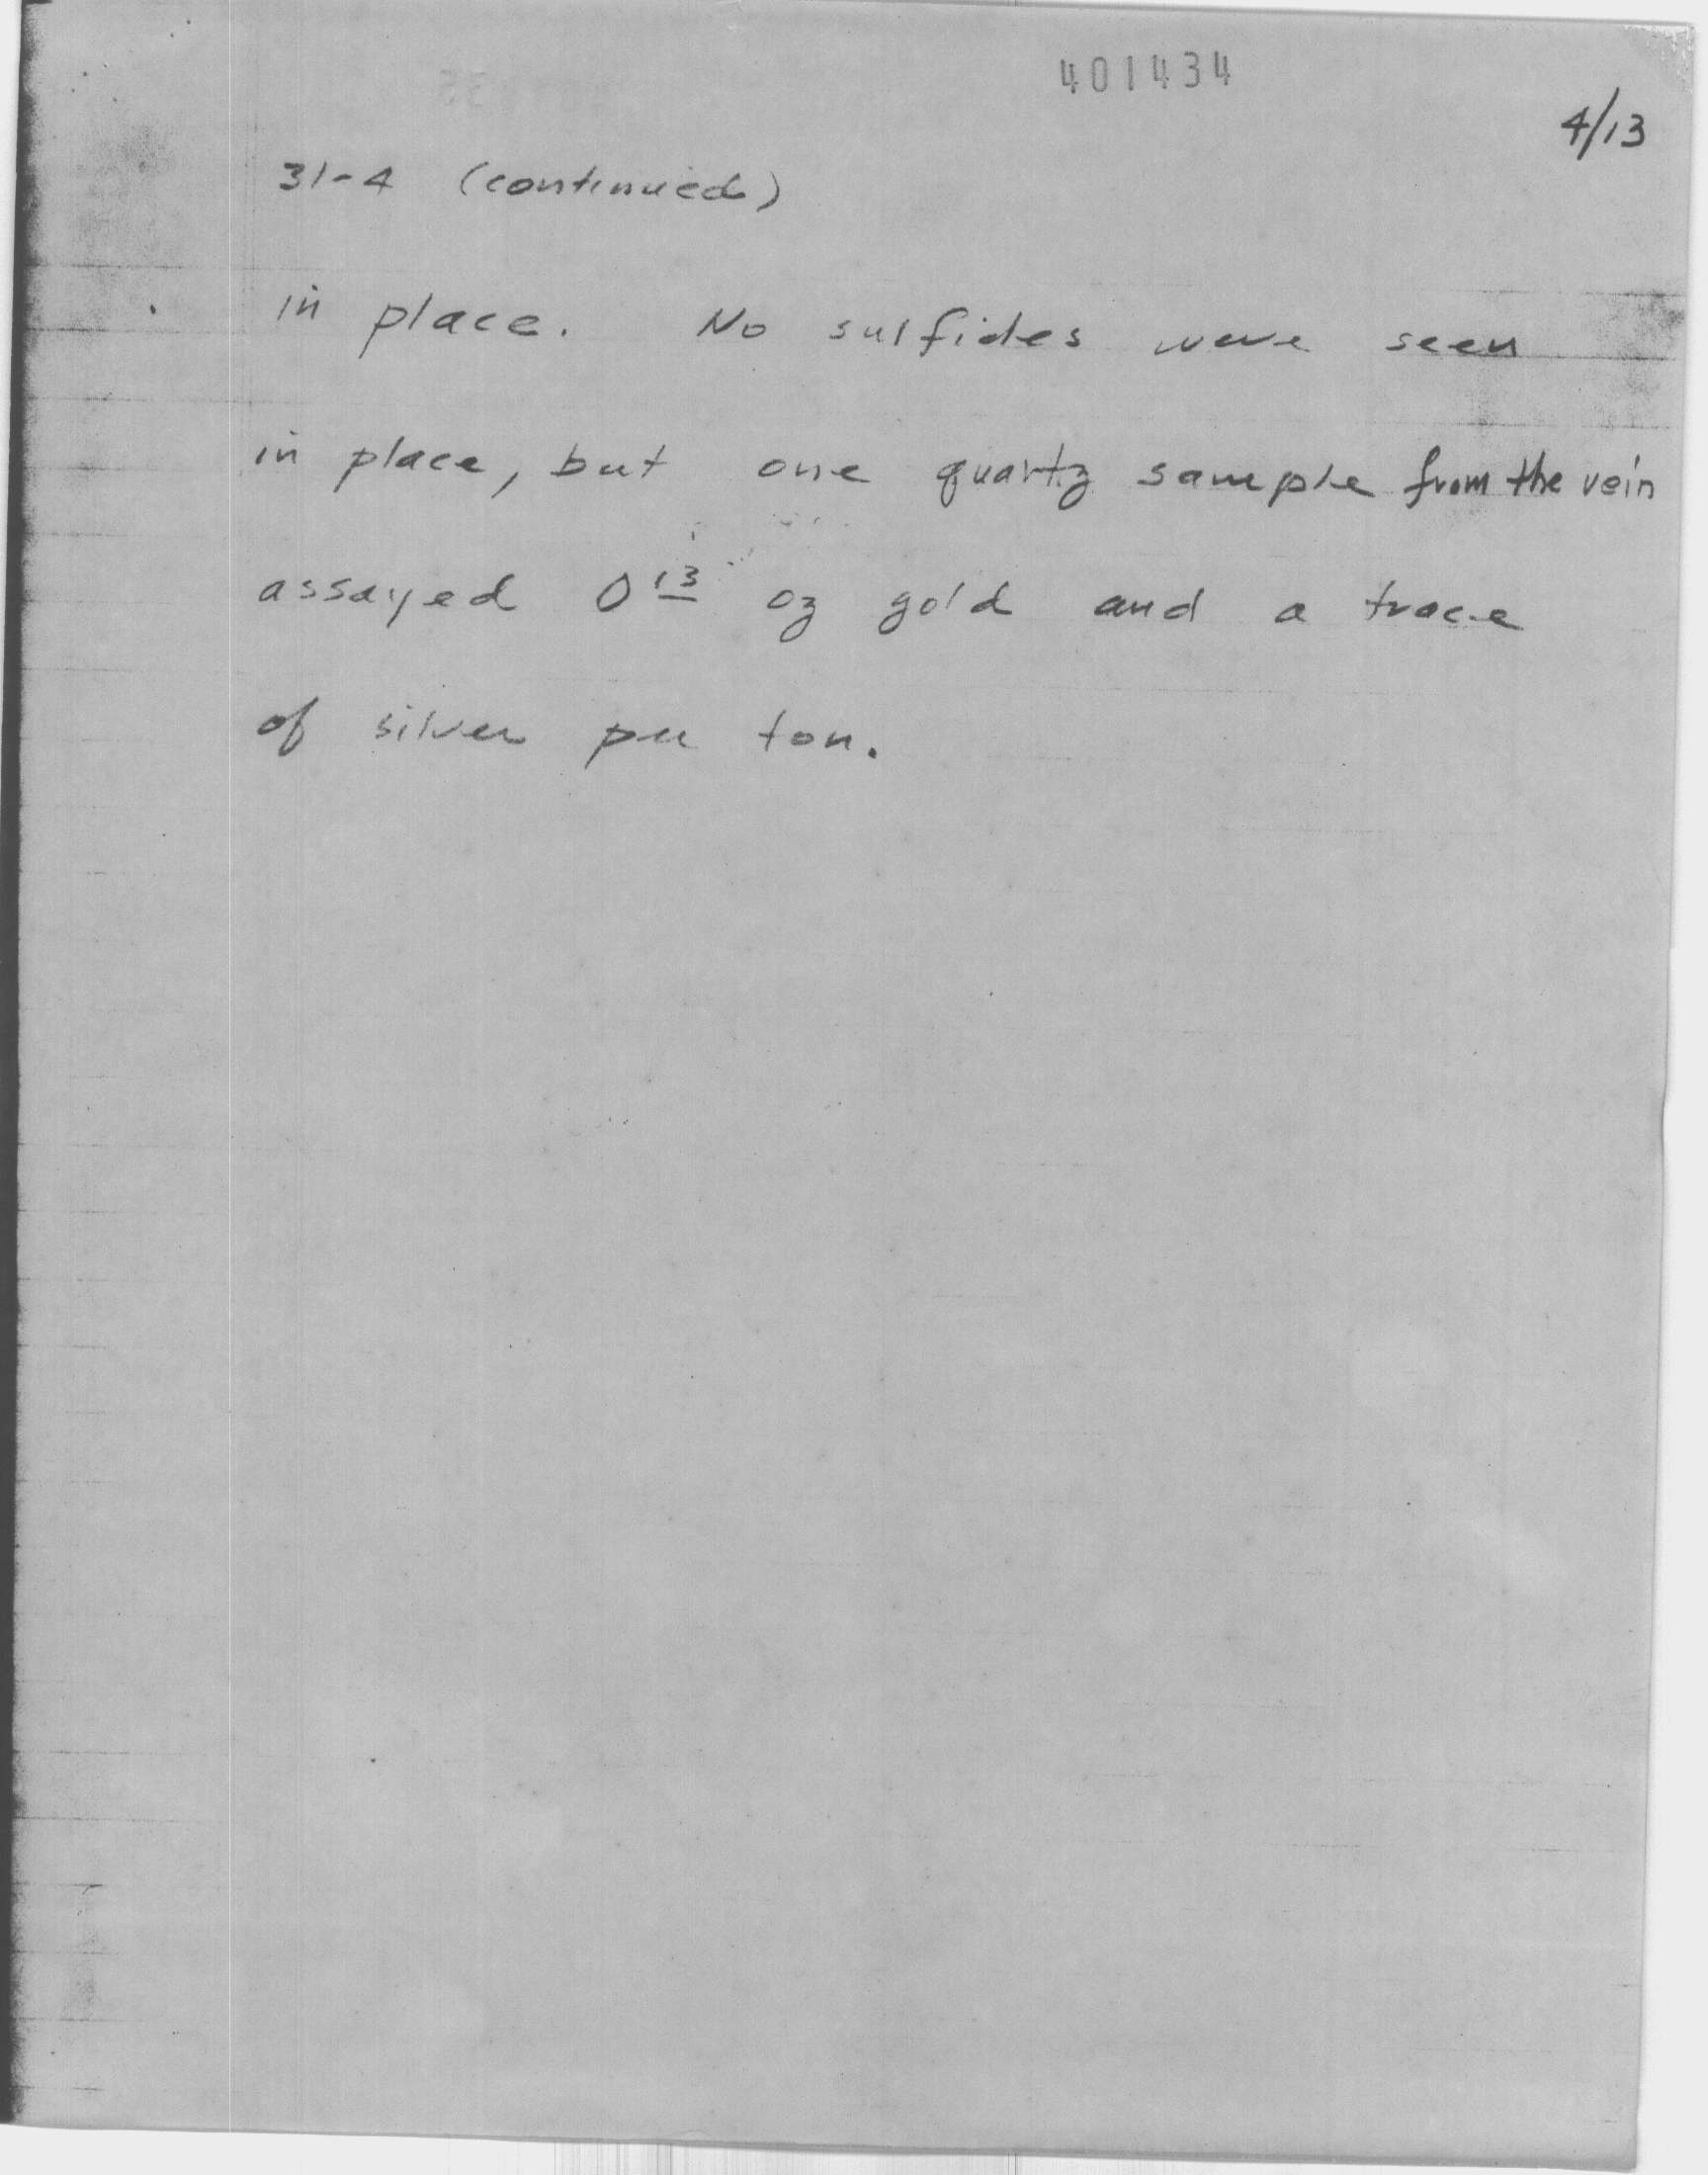 401434
4/13
31-4 (continued)
in place. No sulfides were seen
in place, but one quartz sample from the vein
assayed 0 13 oz gold and a trace
of silver per ton.